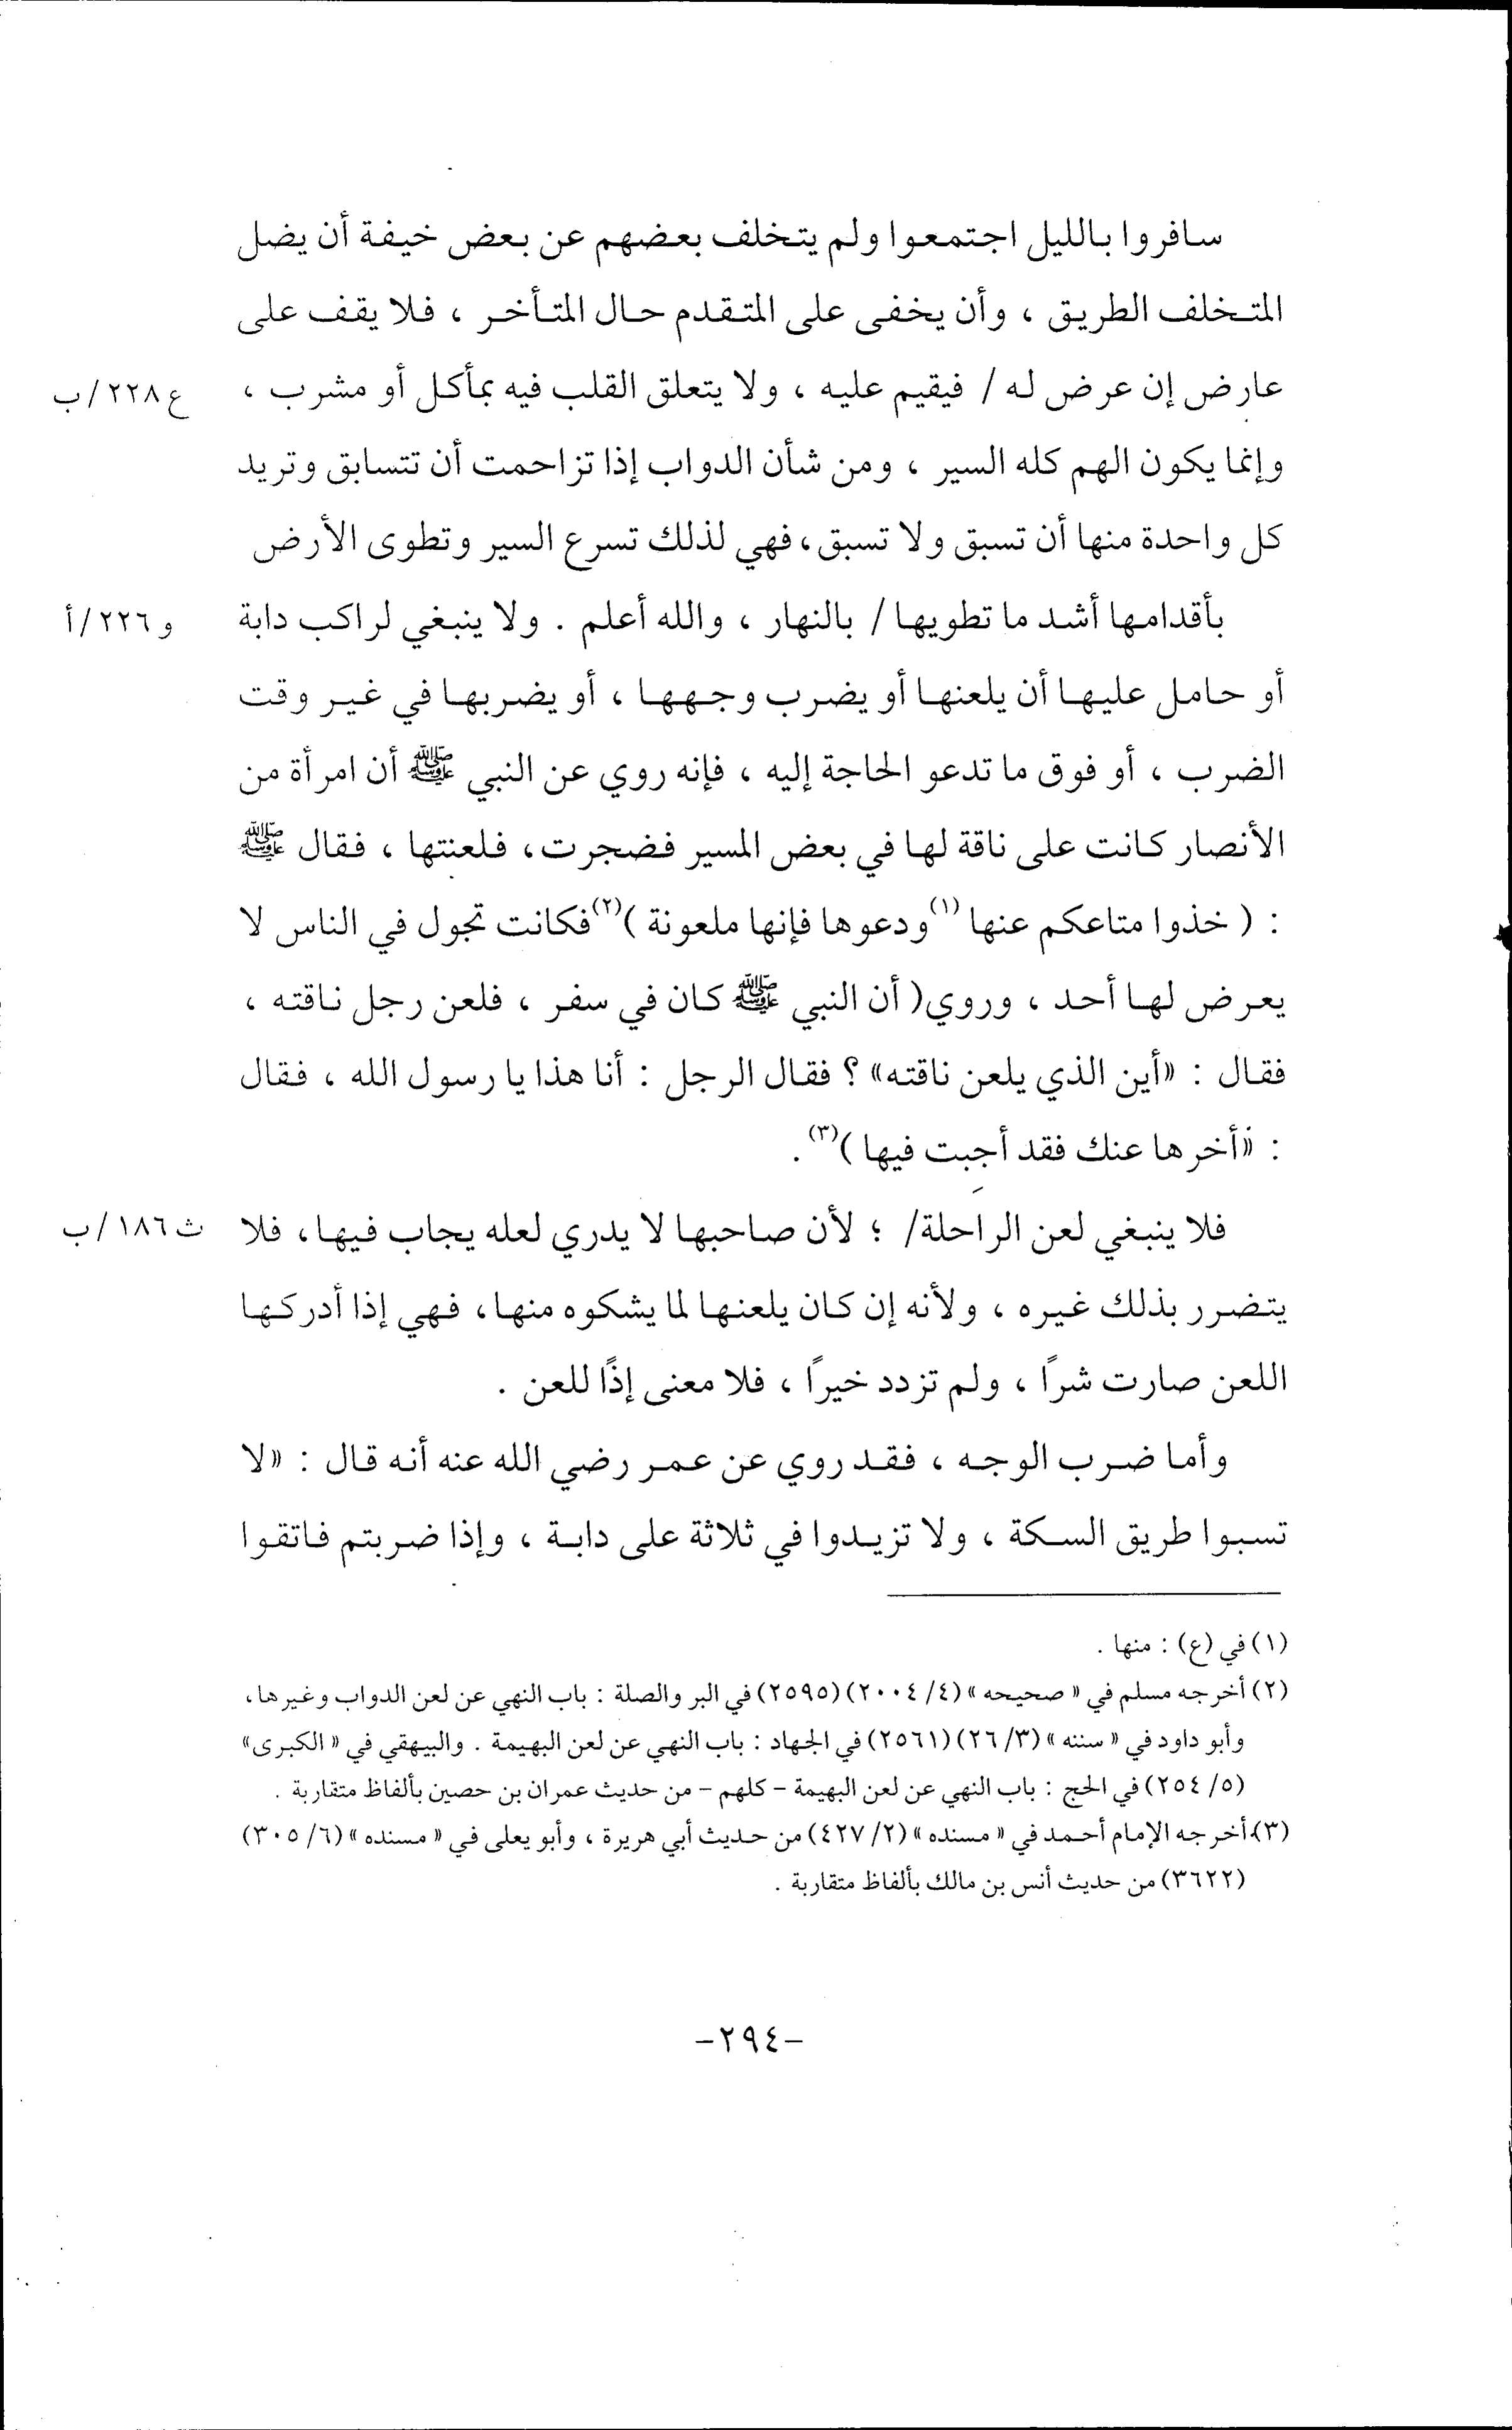 سافروا بالليل اجتمعوا ولم يتخلف بعضهم عن بعض خيفة أن يضل
المتخلف الطريق ، وأن يخفى على المتقدم حال المتأخر ، فلا يقف على
عارض إن عرض له / فيقيم عليه ، ولا يتعلق القلب فيه بمأكل أو مشرب ،
ع ٢٢٨/ب
وإنما يكون الهم كله السير ، ومن شأن الدواب إذا تزاحمت أن تتسابق وتريد
كل واحدة منها أن تسبق ولا تسبق، فهي لذلك تسرع السير وتطوى الأرض
بأقدامها أشد ما تطويها / بالنهار ، والله أعلم . ولا ينبغي لراكب دابة
و ٢٢٦/أ
أو حامل عليها أن يلعنها أو يضرب وجهها ، أو يضربها في غير وقت
الضرب ، أو فوق ما تدعو الحاجة إليه ، فإنه روي عن النبي ﷺ أن امرأة من
الأنصار كانت على ناقة لها في بعض المسير فضجرت، فلعنتها ، فقال ﷺ
: ( خذوا متاعكم عنها (١) ودعوها فإنها ملعونة )(٢) فكانت تجول في الناس لا
يعرض لها أحد ، وروي( أن النبي ﷺ كان في سفر ، فلعن رجل ناقته ،
فقال : «أين الذي يلعن ناقته» ؟ فقال الرجل : أنا هذا يا رسول الله ، فقال
: «أخرها عنك فقد أجبت فيها )(٣) .
فلا ينبغي لعن الراحلة/ ؛ لأن صاحبها لا يدري لعله يجاب فيها، فلا
ث ١٨٦/ب
يتضرر بذلك غيره ، ولأنه إن كان يلعنها لما يشكوه منها، فهي إذا أدركها
اللعن صارت شرًا ، ولم تزدد خيرًا ، فلا معنى إذًا للعن .
وأما ضرب الوجه ، فقد روي عن عمر رضي الله عنه أنه قال : «لا
تسبوا طريق السكة ، ولا تزيدوا في ثلاثة على دابة ، وإذا ضربتم فاتقوا
(١) في (ع) : منها .
(٢) أخرجه مسلم في « صحيحه » (٤/ ٢٠٠٤) (٢٥٩٥) في البر والصلة : باب النهي عن لعن الدواب وغيرها،
وأبو داود في « سننه » (٣/ ٢٦) (٢٥٦١) في الجهاد : باب النهي عن لعن البهيمة . والبيهقي في « الكبرى»
(٥/ ٢٥٤) في الحج : باب النهي عن لعن البهيمة - كلهم - من حديث عمران بن حصين بألفاظ متقاربة .
(٣) أخرجه الإمام أحمد في « مسنده » (٢/ ٤٢٧) من حديث أبي هريرة ، وأبو يعلى في « مسنده » (٦/ ٣٠٥)
(٣٦٢٢) من حديث أنس بن مالك بألفاظ متقاربة .
-٢٩٤-